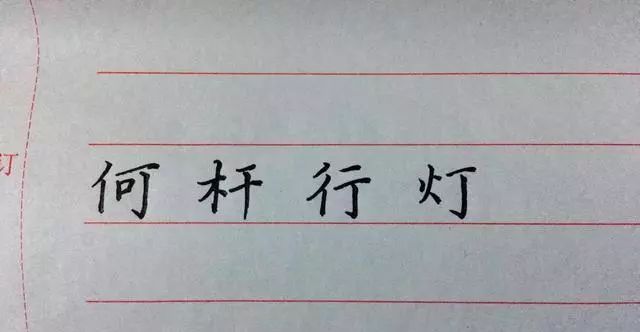 订
何杆行灯